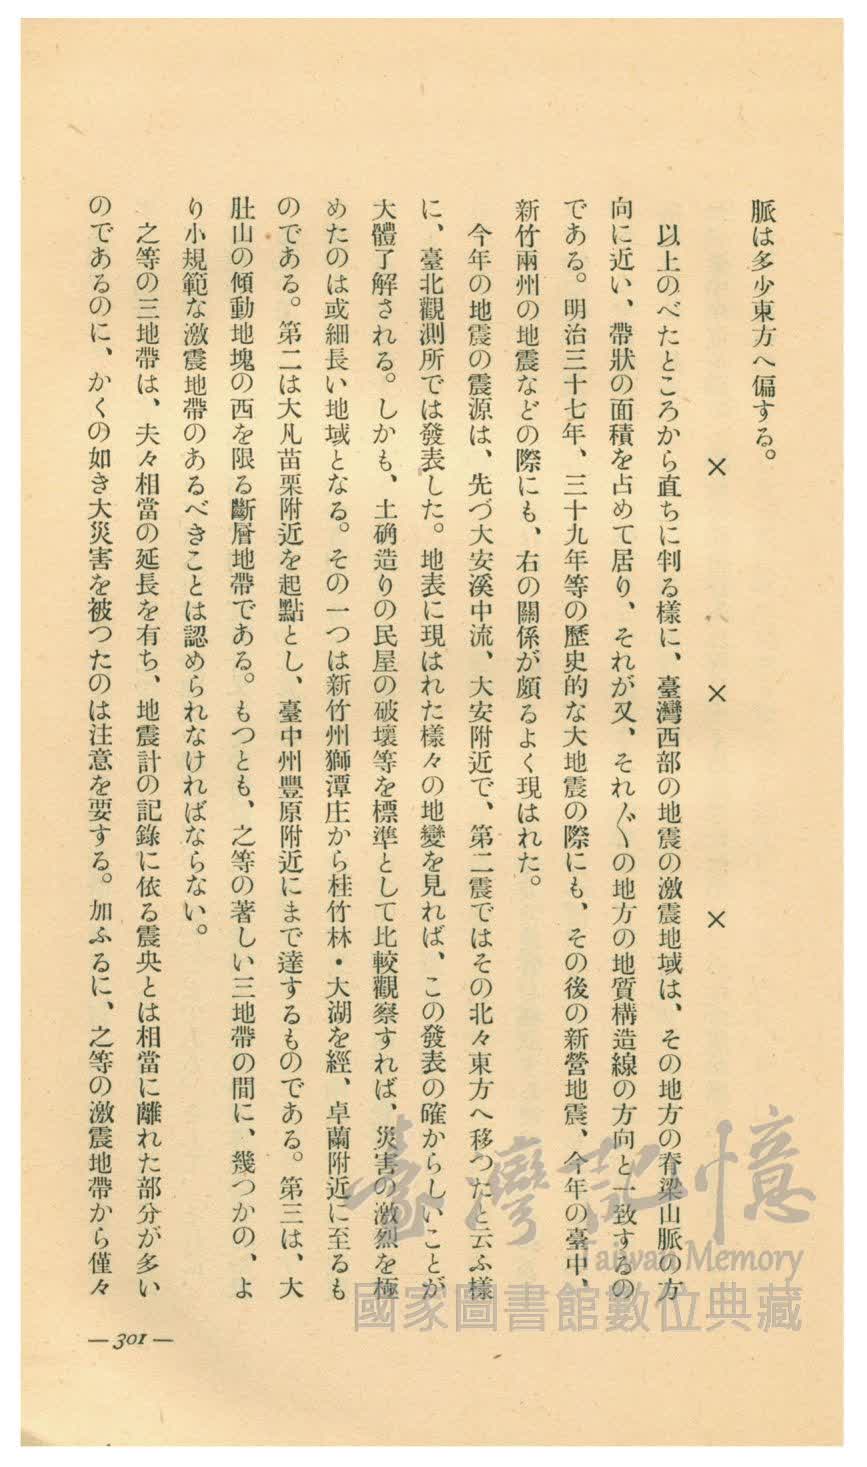 脈は多少東方へ偏する。
× × ×
以上のべたところから直ちに判る樣に、臺灣西部の地震の激震地域は、その地方の脊梁山脈の方
向に近い、帶狀の面積を占めて居り、それが又、それ〴〵の地方の地質構造線の方向と一致するの
である。明治三十七年、三十九年等の歷史的な大地震の際にも、その後の新營地震、今年の臺中、
新竹兩州の地震などの際にも、右の關係が頗るよく現はれた。
今年の地震の震源は、先づ大安溪中流、大安附近で、第二震ではその北々東方へ移つたと云ふ樣
に、臺北觀測所では發表した。地表に現はれた樣々の地變を見れば、この發表の確からしいことが
大體了解される。しかも、土确造りの民屋の破壞等を標準として比較觀察すれば、災害の激烈を極
めたのは或細長い地域となる。その一つは新竹州獅潭庄から桂竹林・大湖を經、卓蘭附近に至るも
のである。第二は大凡苗栗附近を起點とし、臺中州豐原附近にまで達するものである。第三は、大
肚山の傾動地塊の西を限る斷層地帶である。もつとも、之等の著しい三地帶の間に、幾つかの、よ
り小規範な激震地帶のあるべきことは認められなければならない。
之等の三地帶は、夫々相當の延長を有ち、地震計の記錄に依る震央とは相當に離れた部分が多い
のであるのに、かくの如き大災害を被つたのは注意を要する。加ふるに、之等の激震地帶から僅々
— 301 —
臺灣記憶
Taiwan Memory
國家圖書館數位典藏